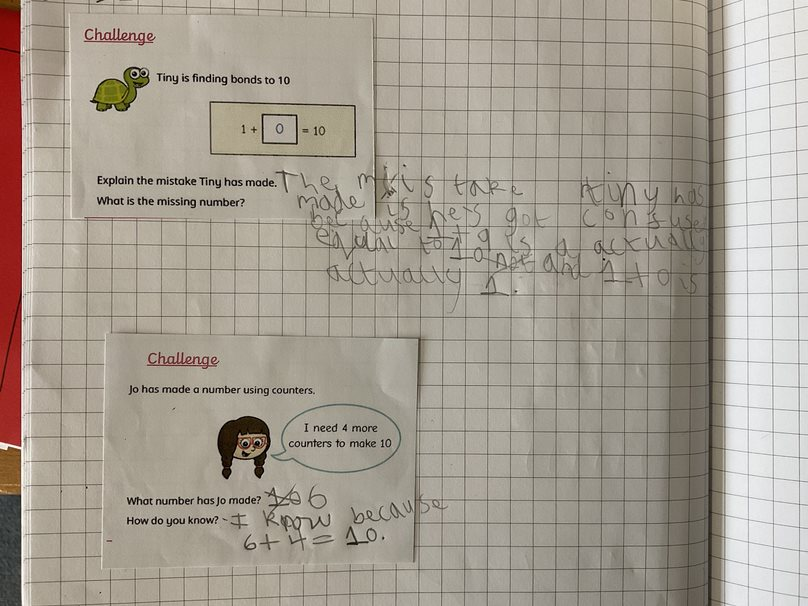 Challenge
Tiny is finding bonds to 10
1 + 0 = 10
Explain the mistake Tiny has made. The mistake tiny has
What is the missing number? made is
because he's got confused
equal to 10 is a actually
1 + 9
actually 1. and 1 + 0 is
Challenge
Jo has made a number using counters.
I need 4 more
counters to make 10
What number has Jo made? 10 6
How do you know? - I know because
6 + 4 = 10.